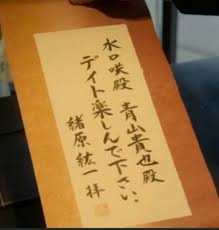 水口咲殿 青山貴也殿
デイト楽しんで下さい
緒原紘一拝